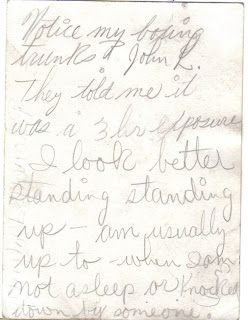 Notice my boxing
trunks & John L.
They told me it
was a 3 hr exposure
I look better
standing standing
up - am usually
up to - when I am
not asleep or knocked
down by someone.